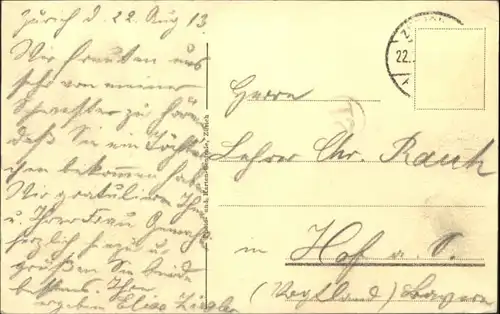 Zürich d. 22. Aug 13.
Wir freuten uns
sehr von meiner
Schwester zu hören
daß Sie ein Töchter-
chen bekommen haben
Wir gratulieren Ihnen
u. Ihrer Frau Gemahl
herzlich hiezu u.
grüßen Sie beide
bestens. Ihre
ergeben Elise Ziegler
Herrn
Lehrer Chr. Rauh
in Hof a. S.
(Vogtland) Bayern
Zürich
22.